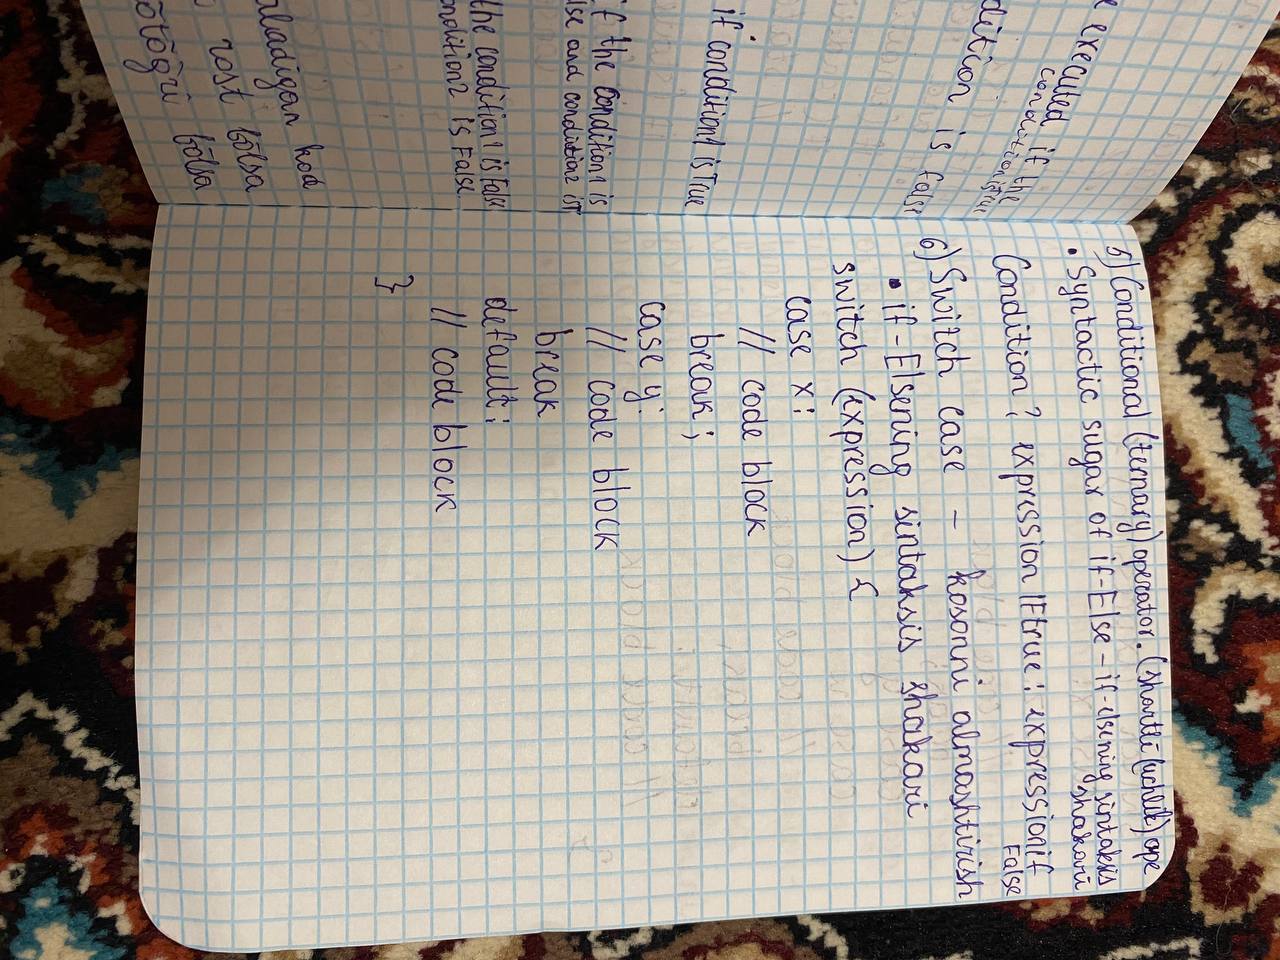 e executed if the
condition is true
dition is false
if condition1 is True
if the condition1 is
lse and condition2 is
the condition1 is False
ondition2 is False
aladigan kod
rost bõlsa
otõg̃ri bõlsa
5) Conditional (ternary) operator. (shartli (uchlik) ope
• Syntactic sugar of if-Else - if-elsening sintaksis
shakari
Condition? expression IFtrue : expressionif
False
6) Switch case - kosonni almashtirish
• if-Elsening sintaksis shakari
switch (expression) {
case x:
// code block
break;
case y:
// code block
break
default:
// code block
}